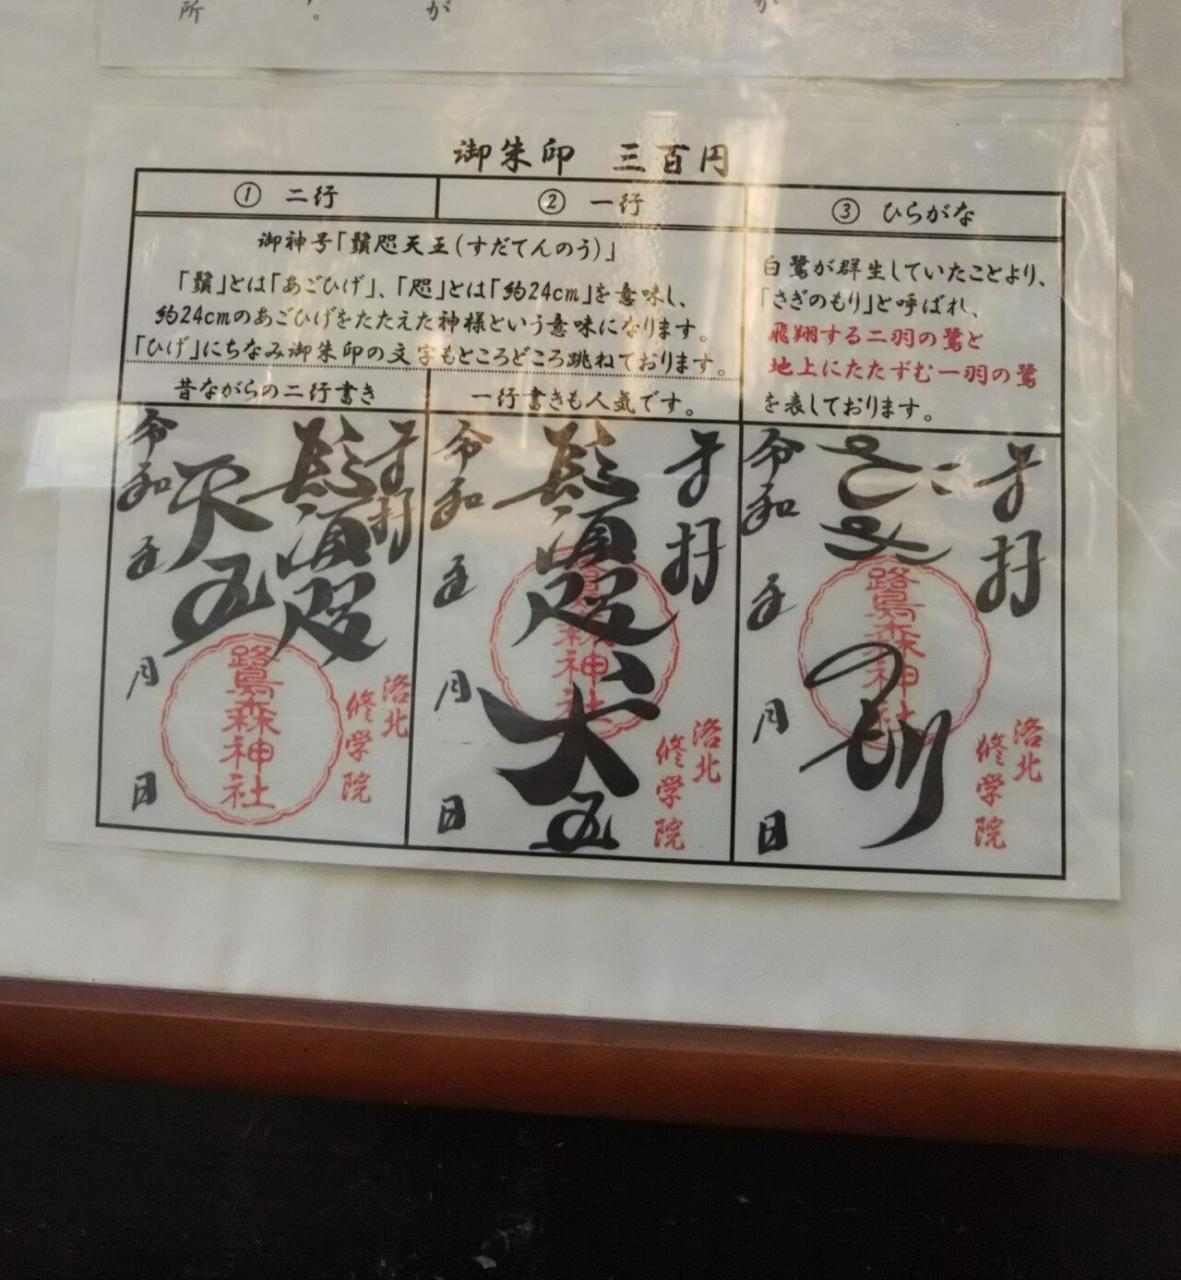 所
。
が
御朱印 三百円
① 二行
② 一行
③ ひらがな
御神号「鬚咫天王(すだてんのう)」
「鬚」とは「あごひげ」、「咫」とは「約24cm」を意味し、
約24cmのあごひげをたたえた神様という意味になります。
「ひげ」にちなみ御朱印の文字もところどころ跳ねております。
白鷺が群生していたことより、
「さぎのもり」と呼ばれ、
飛翔する二羽の鷺と
地上にたたずむ一羽の鷺
を表しております。
昔ながらの二行書き
一行書きも人気です。
奉拝
鬚咫
天王
令和 年 月 日
鷺森神社
洛北
修学院
奉拝
鬚咫天王
令和 年 月 日
鷺森神社
洛北
修学院
奉拝
さぎのもり
令和 年 月 日
鷺森神社
洛北
修学院